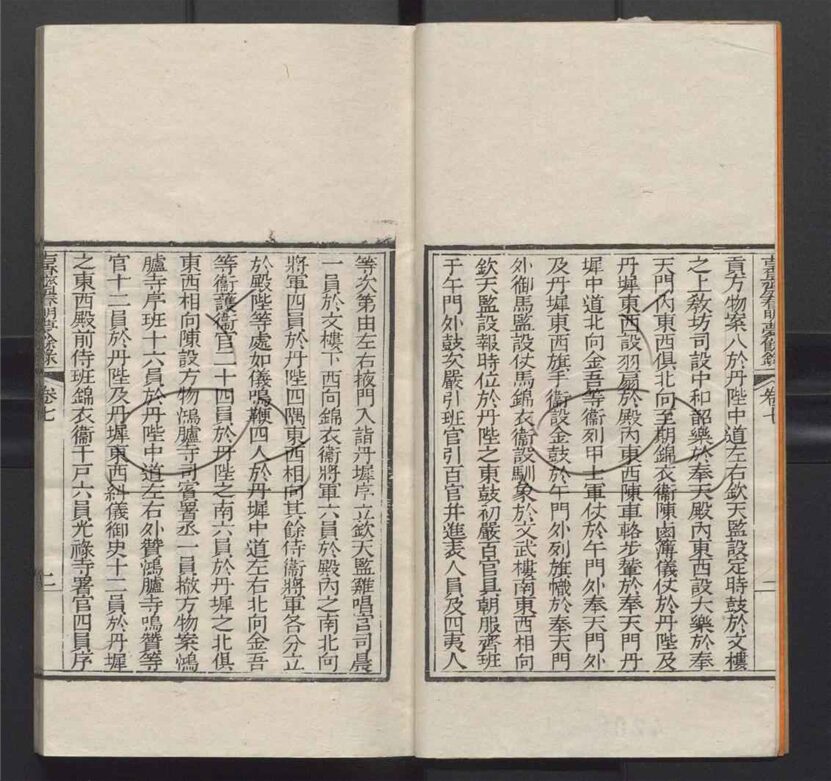 古香齋春明夢餘錄 卷七 二
貢方物案八於丹陛中道左右欽天監設定時鼓於文樓
之上敎坊司設中和韶樂於奉天殿內東西設大樂於奉
天門內東西俱北向至期錦衣衞陳鹵簿儀仗於丹陛及
丹墀東西設羽扇於殿內東西陳車輅步輦於奉天門丹
墀中道北向金吾等衞列甲士軍仗於午門外奉天門外
及丹墀東西旗手衞設金鼓於午門外列旗幟於奉天門
外御馬監設仗馬錦衣衞設馴象於文武樓南東西相向
欽天監設報時位於丹陛之東鼓初嚴百官具朝服齊班
于午門外鼓次嚴引班官引百官并進表人員及四夷人
等次第由左右掖門入詣丹墀序立欽天監雞唱官司晨
一員於文樓下西向錦衣衞將軍六員於殿內之南北向
將軍四員於丹陛四隅東西相向其餘侍衞將軍各分立
於殿陛等處如儀鳴鞭四人於丹墀中道左右北向金吾
等衞護衞官二十四員於丹陛之南六員於丹墀之北俱
東西相向陳設方物鴻臚寺司賓署丞一員撤方物案鴻
臚寺序班十六員於丹陛中道左右外贊鴻臚寺鳴贊等
官十二員於丹陛及丹墀東西糾儀御史十二員於丹墀
之東西殿前侍班錦衣衞千戸六員光祿寺署官四員序
古香齋春明夢餘錄 卷七 二